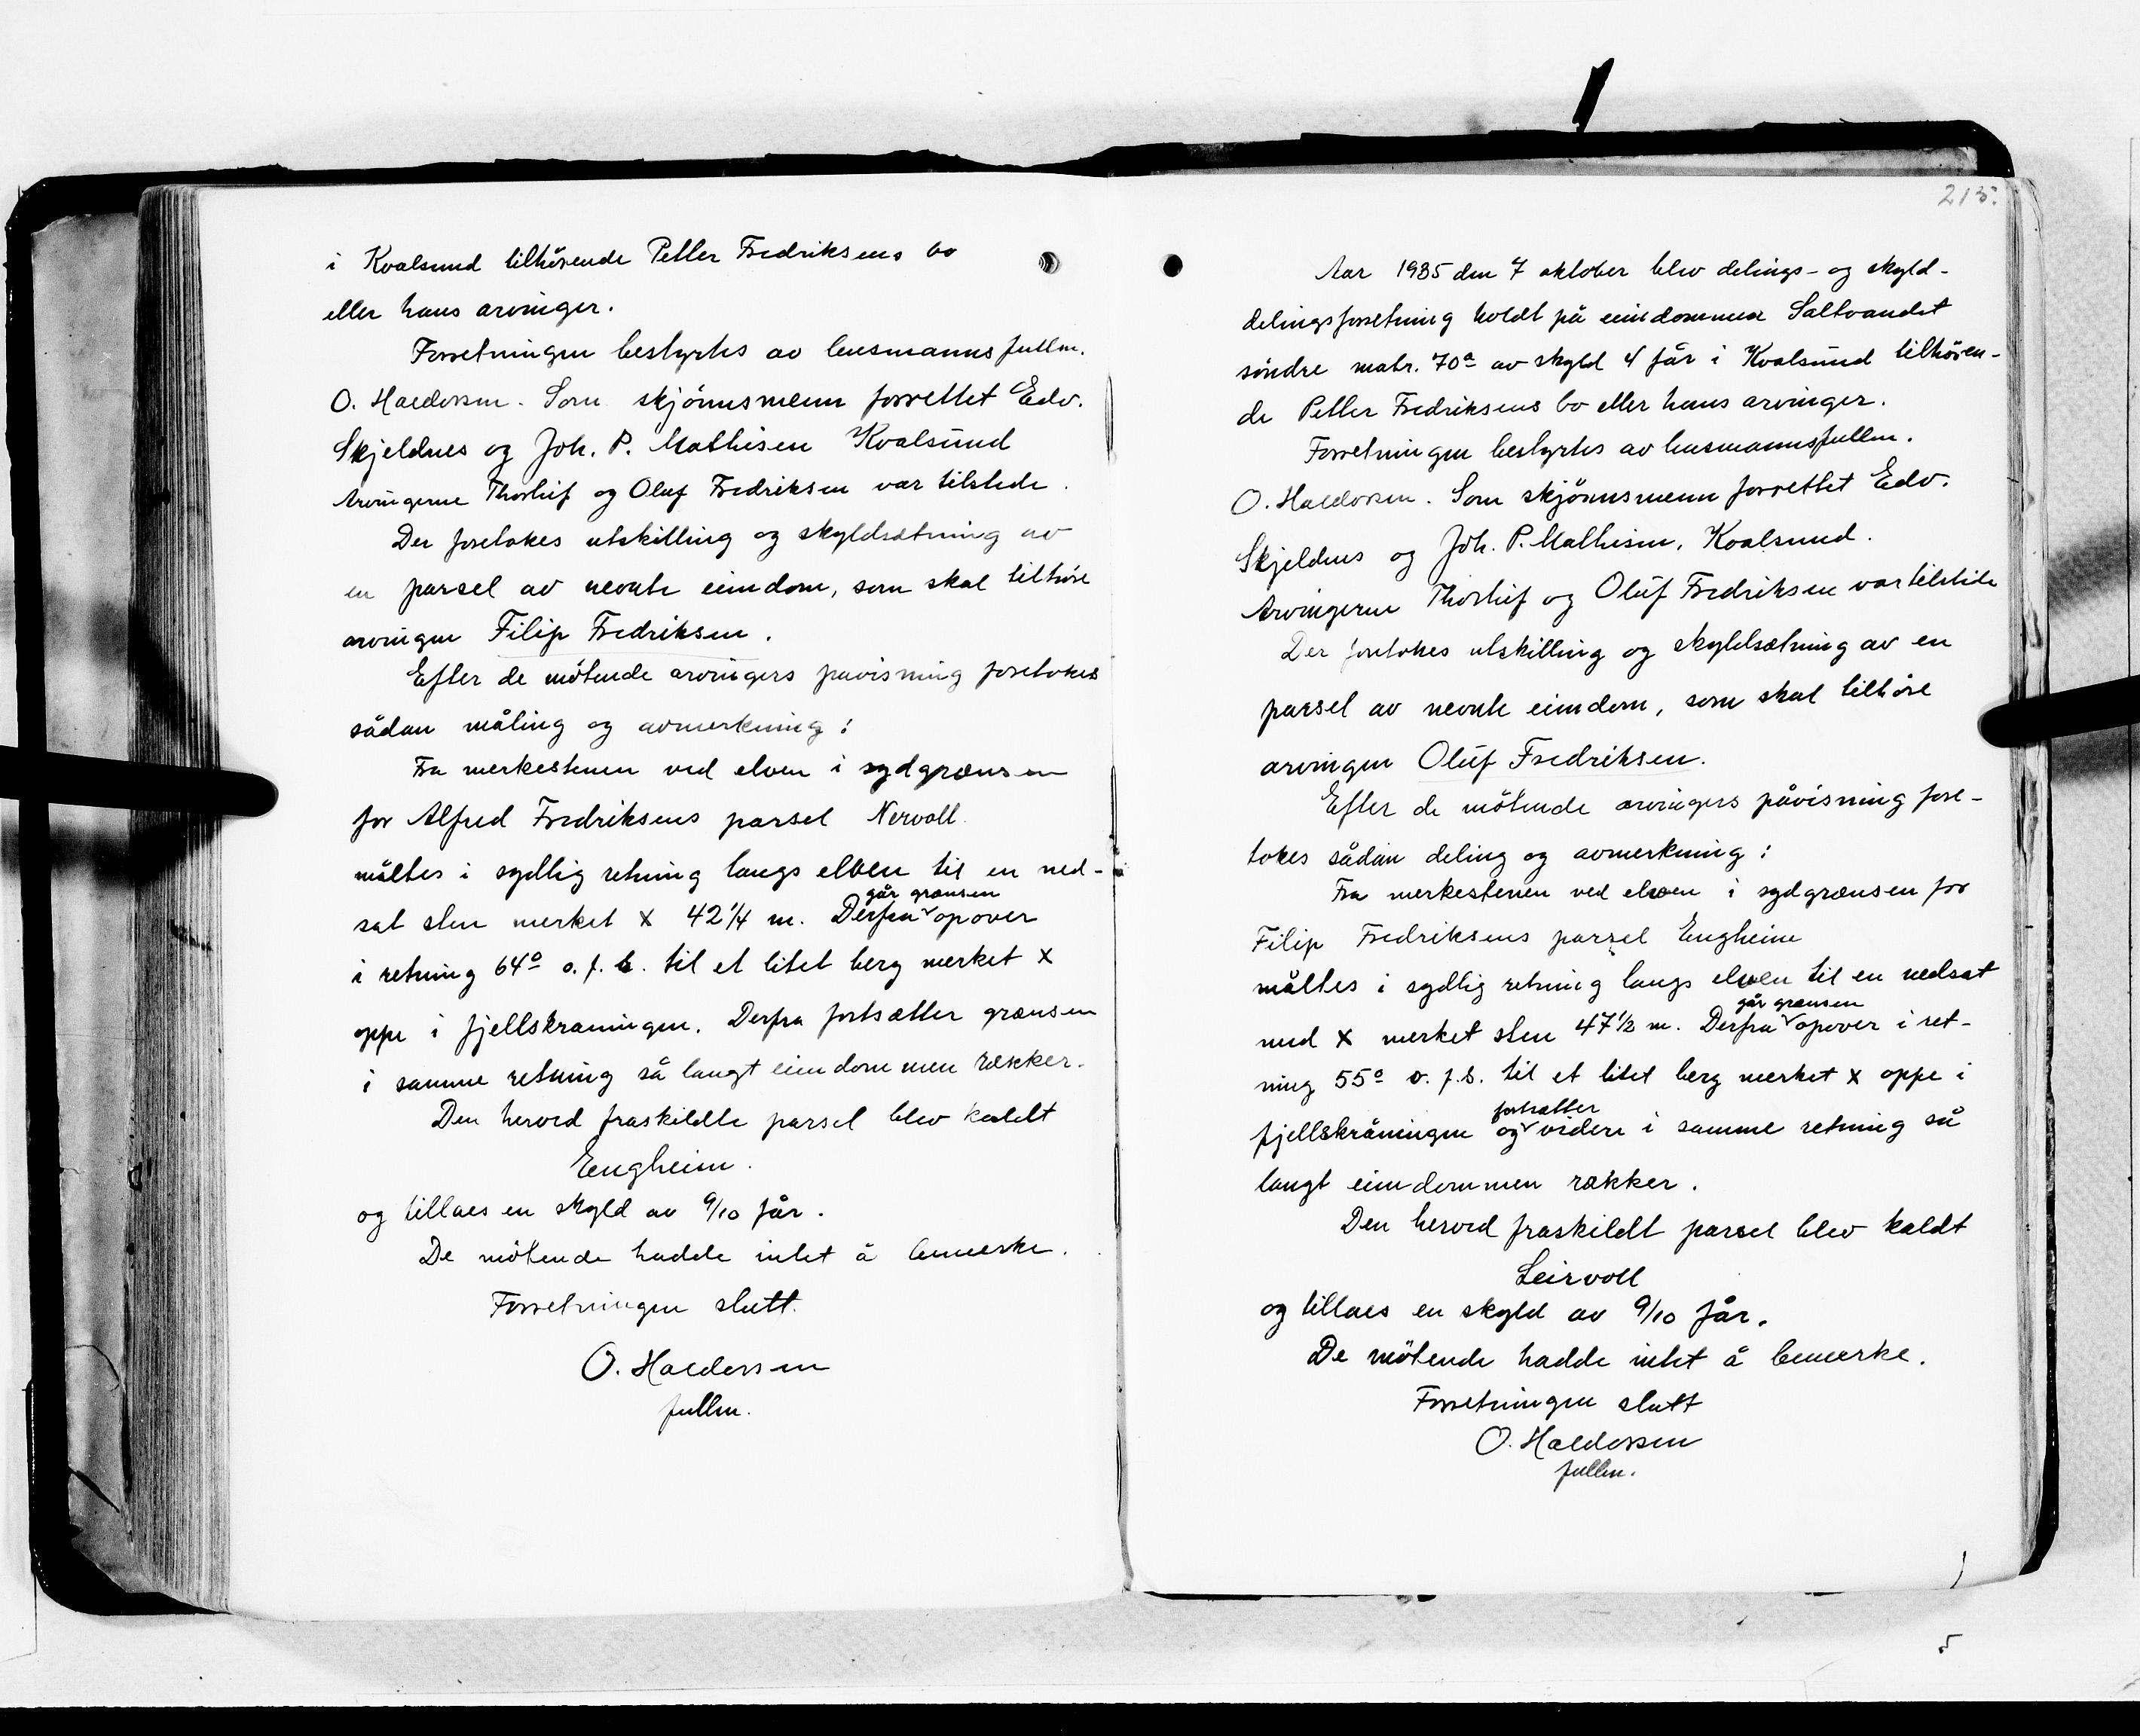 i Kvalsund tilhörende Petter Fredriksens bo
eller hans arvinger.
Forretningen bestyrtes av lensmannsfullm.
O. Haldorsen. Som skjönnsmenn forrettet Edv.
Skjeldnes og Joh. P. Mathisen Kvalsund
Arvingerne Thorleif og Oluf Fredriksen var tilstede.
Der foretokes utskilling og skyldsætning av
en parsel av nevnte eiendom, som skal tilhöre
arvingen Filip Fredriksen.
Efter de mötende arvingers påvisning foretokes
sådan måling og avmerkning:
Fra merkestenen ved elven i sydgrænsen
for Alfred Fredriksens parsel Nervoll
måltes i sydlig retning langs elven til en ned-
går grænsen
sat sten merket x 42 1/4 m. Derfra opover
i retning 64º o. f. s. til et litet berg merket x
oppe i fjellskraaningen. Derfra fortsætter grænsen
i samme retning så langt eiendommen rækker.
Den herved fraskildte parsel blev kaldt
Engheim.
og tillaes en skyld av 9/10 får.
De mötende hadde intet å bemerke.
Forretningen slutt.
O. Haldorsen
fullm.
215.
Aar 1935 den 7 oktober blev delings- og skyld-
delingsforretning holdt på eiendommen Saltvandet
söndre matr. 70a av skyld 4 får i Kvalsund tilhören-
de Petter Fredriksens bo eller hans arvinger.
Forretningen bestyrtes av lensmannsfullm.
O. Haldorsen. Som skjönnsmenn forrettet Edv.
Skjeldnes og Joh. P. Mathisen, Kvalsund.
Arvingerne Thorleif og Oluf Fredriksen var tilstede
Der foretokes utskilling og skyldsætning av en
parsel av nevnte eiendom, som skal tilhöre
arvingen Oluf Fredriksen.
Efter de mötende arvingers påvisning fore-
tokes sådan deling og avmerkning:
Fra merkestenen ved elven i sydgrænsen for
Filip Fredriksens parsel Engheim
måltes i sydlig retning langs elven til en nedsat
går grænsen
med x merket sten 47 1/2 m. Derfra opover i ret-
ning 55º o. f. s. til et litet berg merket x oppe i
fortsætter
fjellskråningen og videre i samme retning så
langt eiendommen rækker.
Den herved fraskildt parsel blev kaldt
Leirvoll
og tillaes en skyld av 9/10 får.
De mötende hadde intet å bemerke.
Forretningen slutt
O. Haldorsen
fullm.